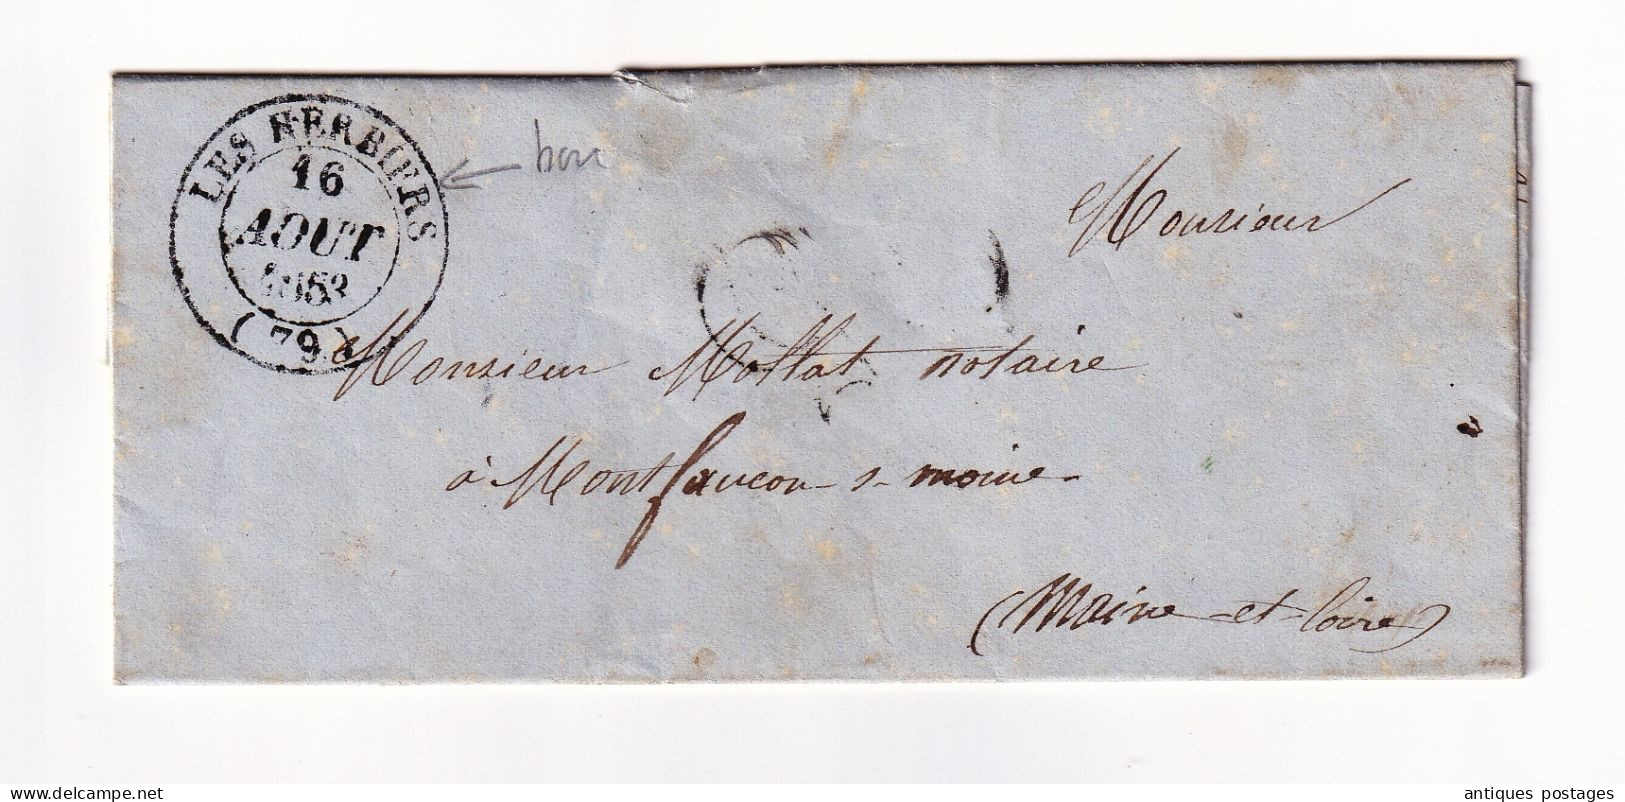 LES HERBIERS
16
AOUT
1853
(79)
bon
Monsieur
Monsieur Mottat notaire
à Montfaucon-s-moine-
(Maine-et-loire)
delcampe.net
antiques postages